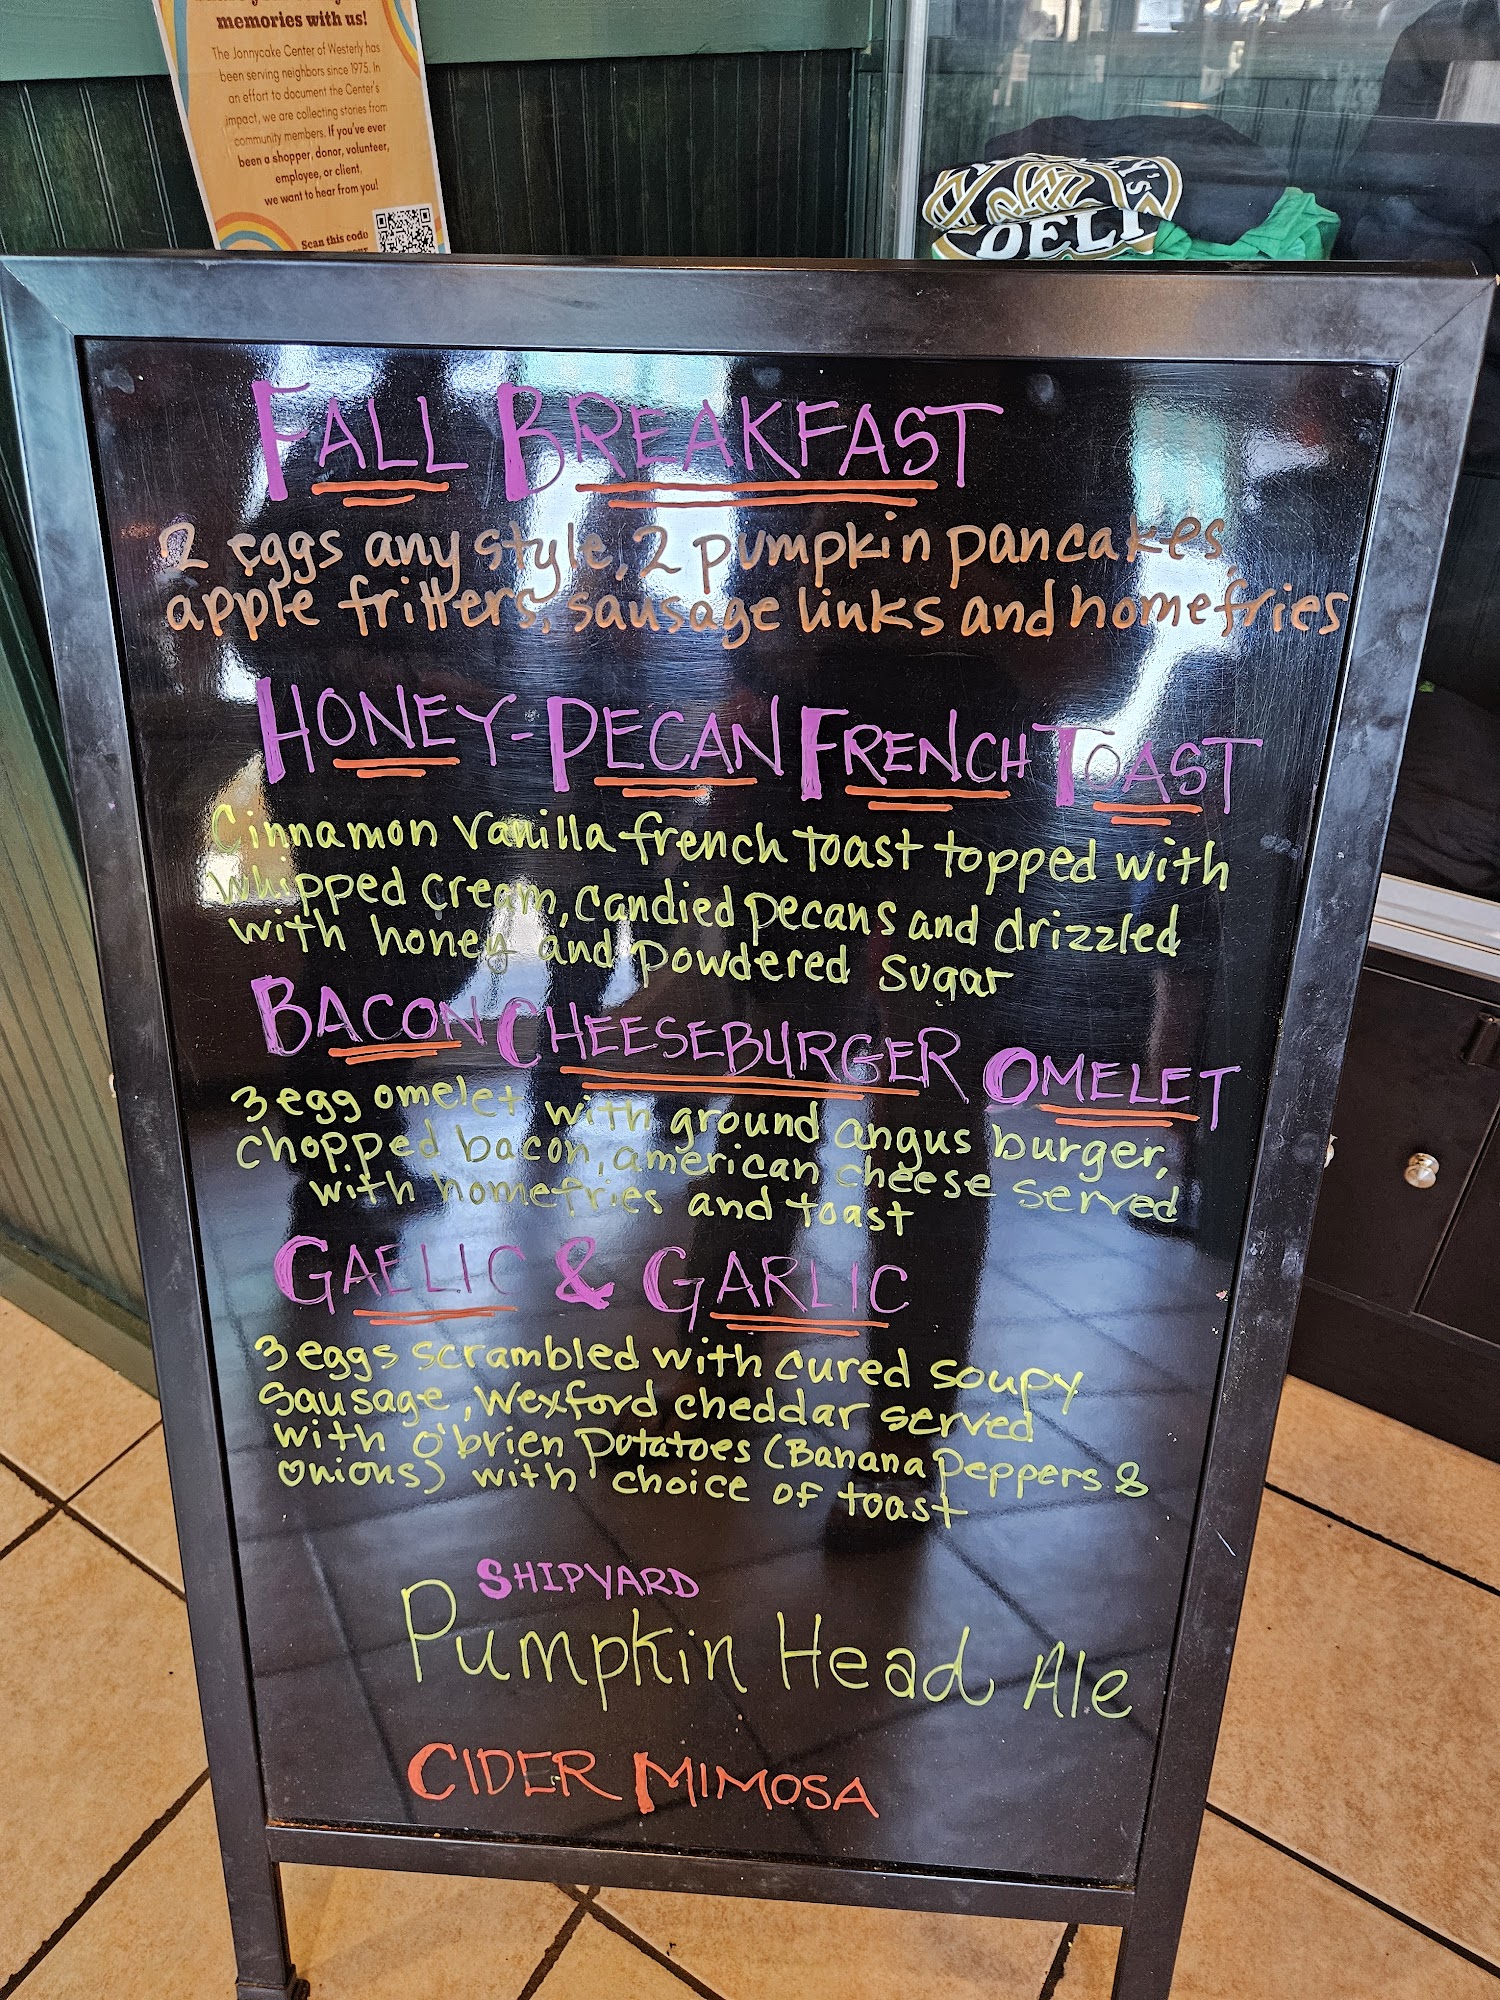 memories with us!
The Jonnycake Center of Westerly has
been serving neighbors since 1975. In
an effort to document the Center's
impact, we are collecting stories from
community members. If you've ever
been a shopper, donor, volunteer,
employee, or client,
we want to hear from you!
Scan this code
DELI
FALL BREAKFAST
2 eggs any style, 2 pumpkin pancakes,
apple fritters, sausage links and homefries
HONEY-PECAN FRENCH TOAST
Cinnamon Vanilla french toast topped with
whipped cream, candied pecans and drizzled
with honey and powdered sugar
BACON CHEESEBURGER OMELET
3 egg omelet with ground angus burger,
chopped bacon, american cheese served
with homefries and toast
GAELIC & GARLIC
3 eggs scrambled with cured soupy
sausage, Wexford cheddar served
with o'brien potatoes (Banana Peppers &
onions) with choice of toast
SHIPYARD
Pumpkin Head Ale
CIDER MIMOSA